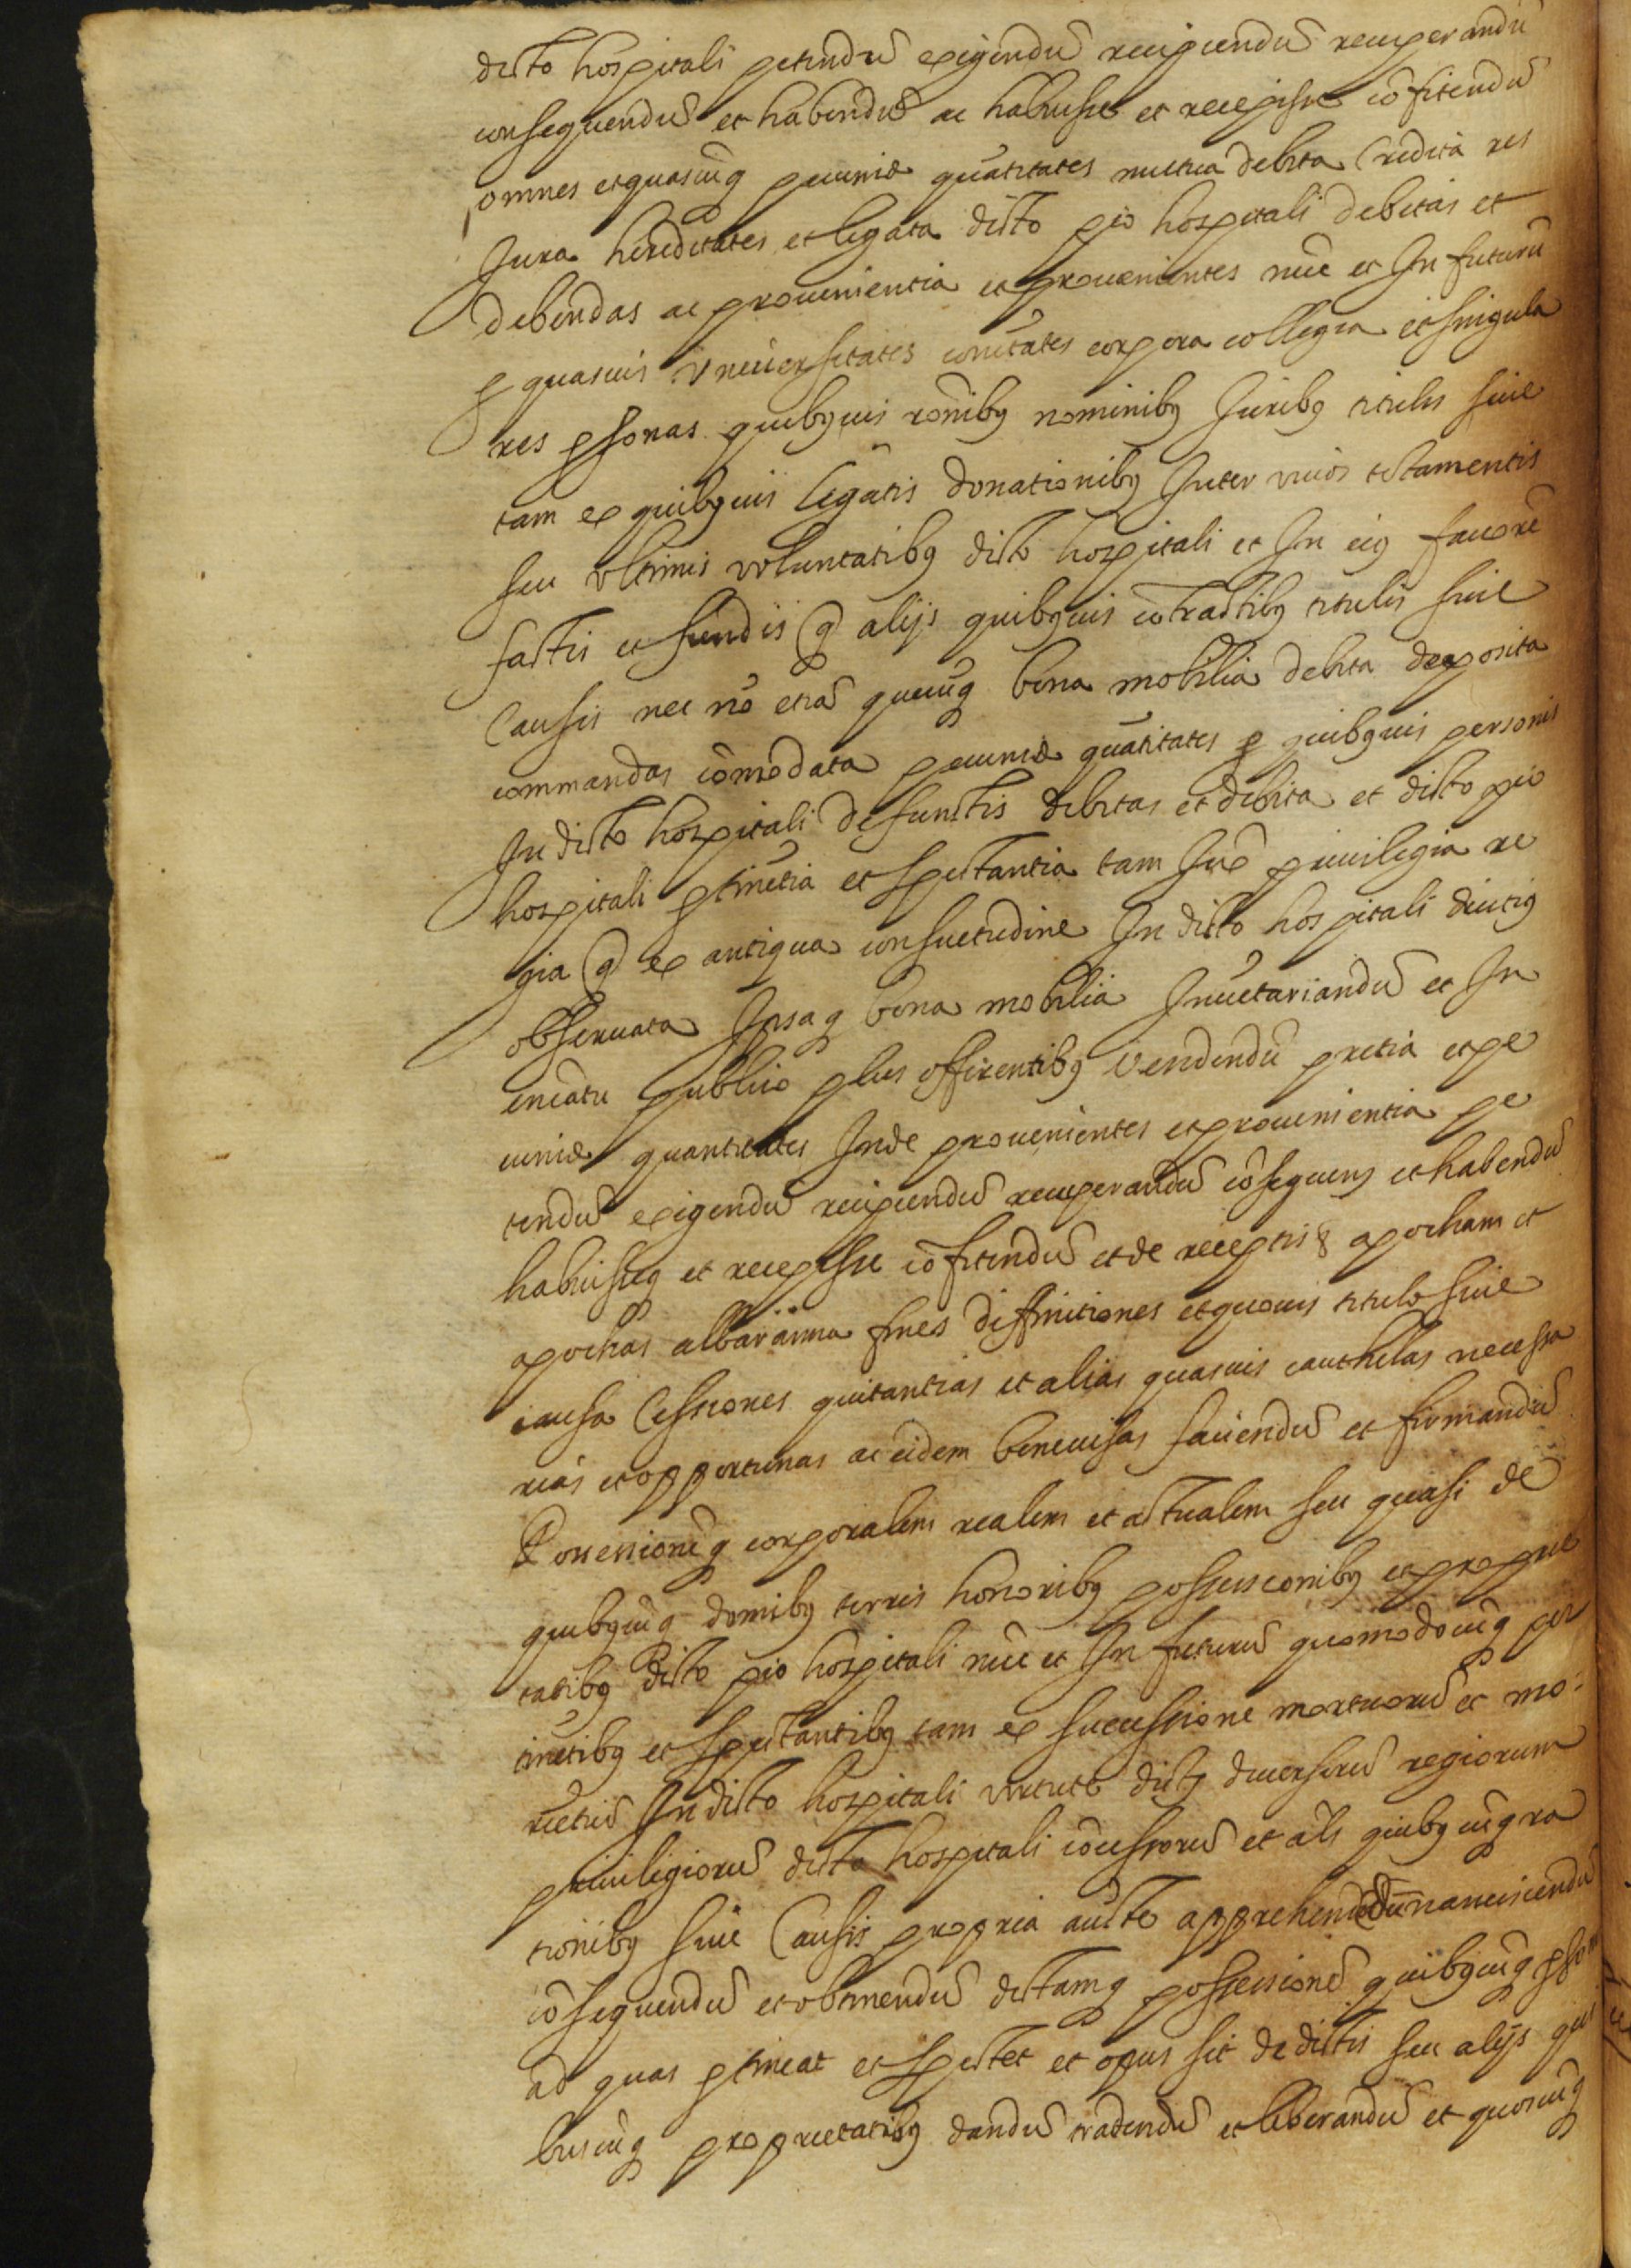 dicto hospitali petendũ exigendũ recipiendũ recuperandũ
consequendũ et habendũ ac habuisse et recepisse cõfitendũ
omnes et quascũq pecuniæ quãtitates mutua debita Credita res
Jura hereditates et legata dicto pio hospitali debitas et
debendas ac prouenientia et prouenientes nũc et In futurũ
ꝑ quasuis vniuersitates cõmitates corpora collegia et singula
res ꝑsonas quibꝯuis rõnibꝯ nominibꝯ Juribꝯ titulis siue
tam ex quibꝯuis legatis donationibꝯ Inter viuos testamentis
seu vltimis voluntatibꝯ dicto hospitali et In eiꝯ fauorẽ
factis et fiendis q̃ alijs quibꝯuis cõtractibꝯ titulis siue
Causis nec nõ etiã quecũq bona mobilia debita deposita
commandas cõmodata pecuniæ quãtitates ꝑ quibꝯuis personis
In dicto hospitali defunctis debitas et debita et dicto pio
hospitali ꝑtinẽtia et spectantia tam Jure priuilegia re
gia q̃ ex antiqua consuetudine In dicto hospitali diutiꝯ
obseruata Ipsaq bona mobilia Inuẽtariandũ et In
encãtu publico plus offerentibꝯ vendendũ pretia et pe
cuniæ quantitates Inde prouenientes et prouenientia pe
tendũ exigendũ recipiendũ recuperandũ cõsequens et habendũ
habuisseq et recepisse cõfitendũ et de receptis apocham et
apochas albaranna fines diffinitiones et quouis titulo siue
causa Cessiones quitantias et alias quasuis cauthelas necessa
rias et opportunas ac eidem beneuisas faciendũ et firmandũ
Possessionẽq corporalem realem et actualem seu quasi de
quibꝯcũq domibꝯ terris honoribꝯ possessionibꝯ et proprie
tatibꝯ dicto pio hospitali nũc et In futurũ quomodocũq per
tinẽtibꝯ et spectantibꝯ tam ex successione mortuorũ et mo-
riẽtiũ In dicto hospitali virtute dictꝯ diuersorũ regiorum
priuilegiorũ dicto hospitali cõcessorũ et als quibꝯcũq ra
tionibꝯ siue Causis propria aucte apprehendẽdũ nanciscendũ
cõsequendũ et obtinendũ dictamq possessionẽ quibꝯcũq
ad quas ꝑtineat et spectet et opus sit de dictis seu alijs qui
buscũq proprietatibꝯ dandũ tradendũ et liberandũ et quoscũq